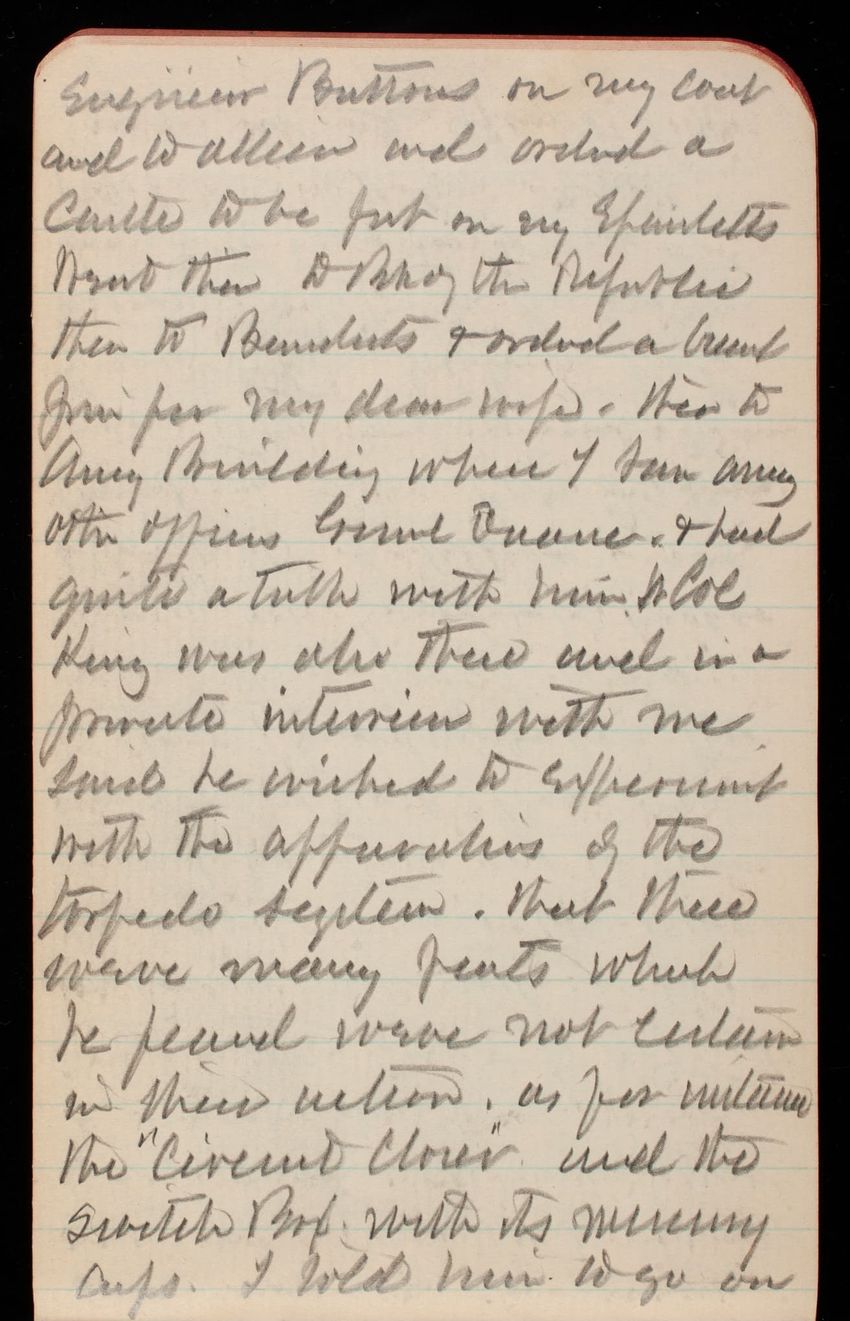 Engineer Buttons on my coat
and to Allien and ordered a
Castle to be put on my Epauletts
Went then to Bk of the Republic
then to Benedicts & ordered a breast
pin for my dear wife. Then to
Army Building where I saw among
other officers General Duane. & had
quite a talk with him. Lt Col
King was also there and in a
private interview with me
said he wished to experiment
with the apparatus of the
torpedo system. That there
were many parts which
he feared were not certain
in their action. as for instance
the "Circuit Closer" and the
Switch Box. with its mercury
cups. I told him to go on